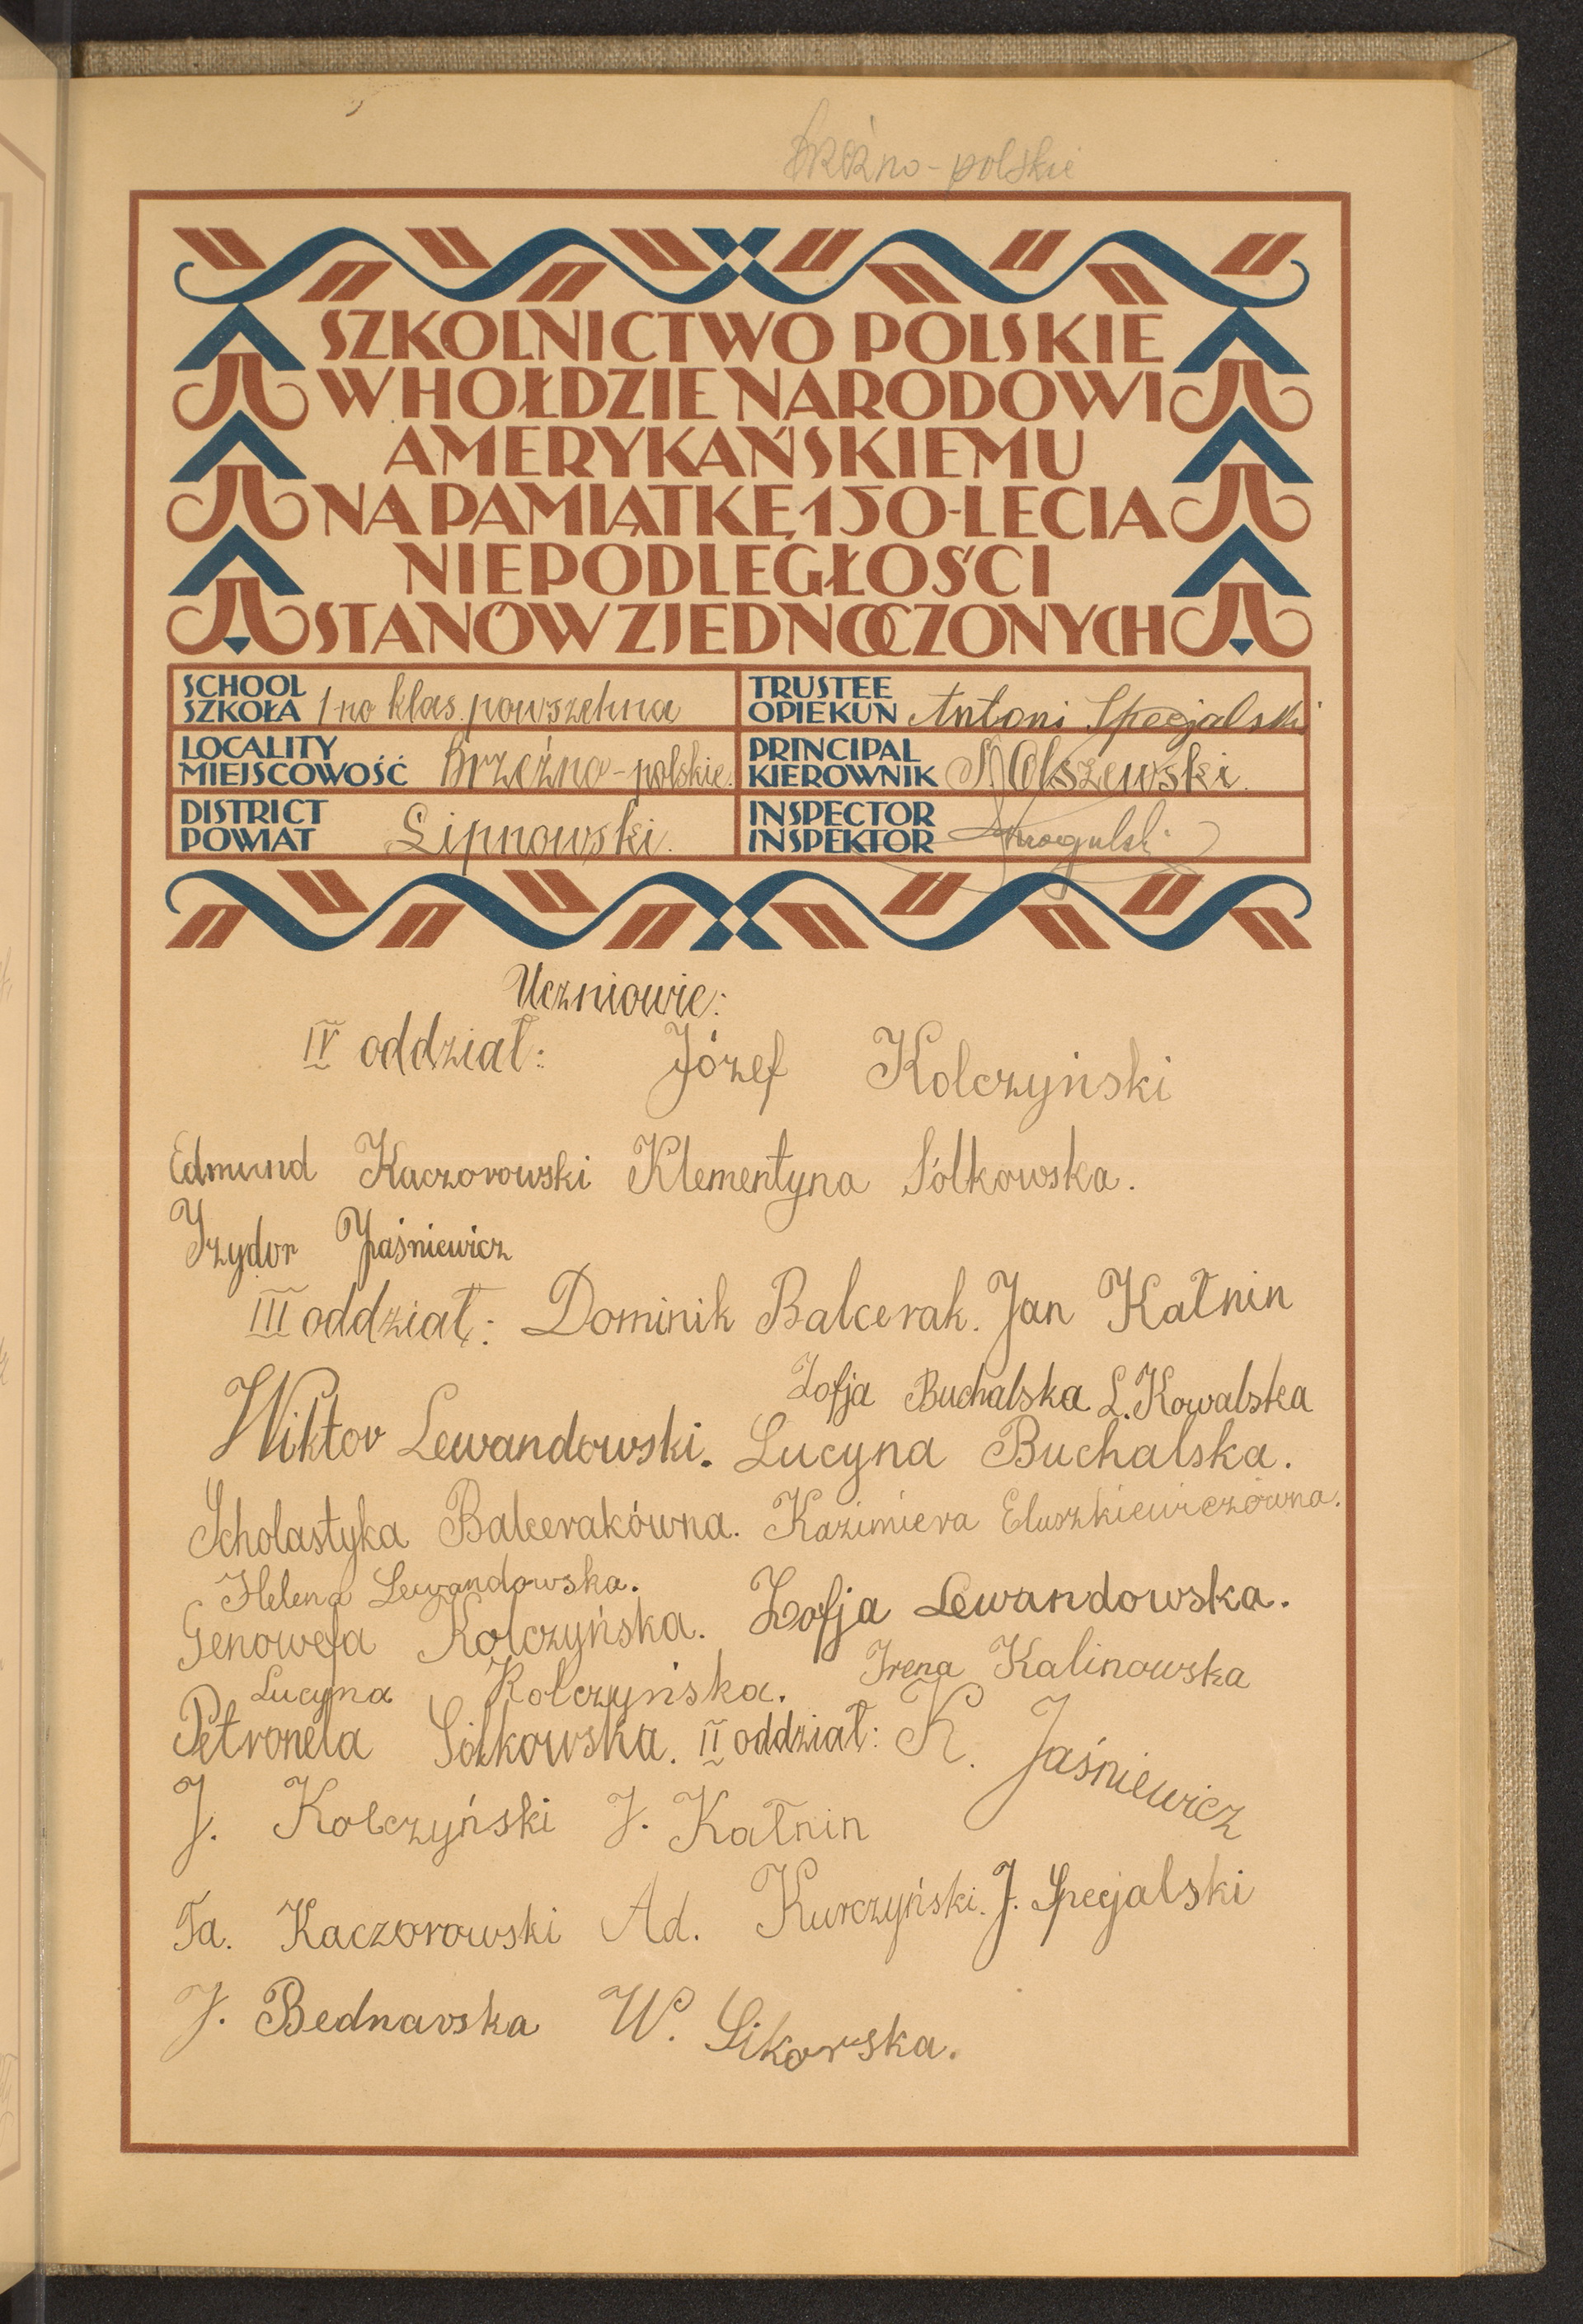 Brzeźno-polskie
SZKOLNICTWO POLSKIE
W HOŁDZIE NARODOWI
AMERYKAŃSKIEMU
NA PAMIĄTKĘ 150-LECIA
NIEPODLEGŁOŚCI
STANÓW ZJEDNOCZONYCH
SCHOOL
SZKOŁA 1-no klas. powszehna
TRUSTEE
OPIEKUN Antoni Specjalski
LOCALITY
MIEJSCOWOŚĆ Brzeźno-polskie.
PRINCIPAL
KIEROWNIK Olszewski.
DISTRICT
POWIAT Lipnowski.
INSPECTOR
INSPEKTOR
Uczniowie:
IV oddział: Józef Kolczyński
Edmund Kaczorowski Klementyna Sółkowska.
Izydor Jaśniewicz
III oddział: Dominik Balcerak. Jan Kałnin
Zofja Buchalska L. Kowalska
Wiktor Lewandowski. Lucyna Buchalska.
Scholastyka Balcerakówna. Kazimiera Eluszkiewiczówna.
Helena Lewandowska.
Genowefa Kolczyńska. Zofja Lewandowska.
Lucyna Kolczyńska. Irena Kalinowska
Petronela Sółkowska. II oddział: K. Jaśniewicz
J. Kolczyński J. Kałnin
Ta. Kaczorowski Ad. Kurczyński. J. Specjalski
J. Bednarska W. Sikorska.